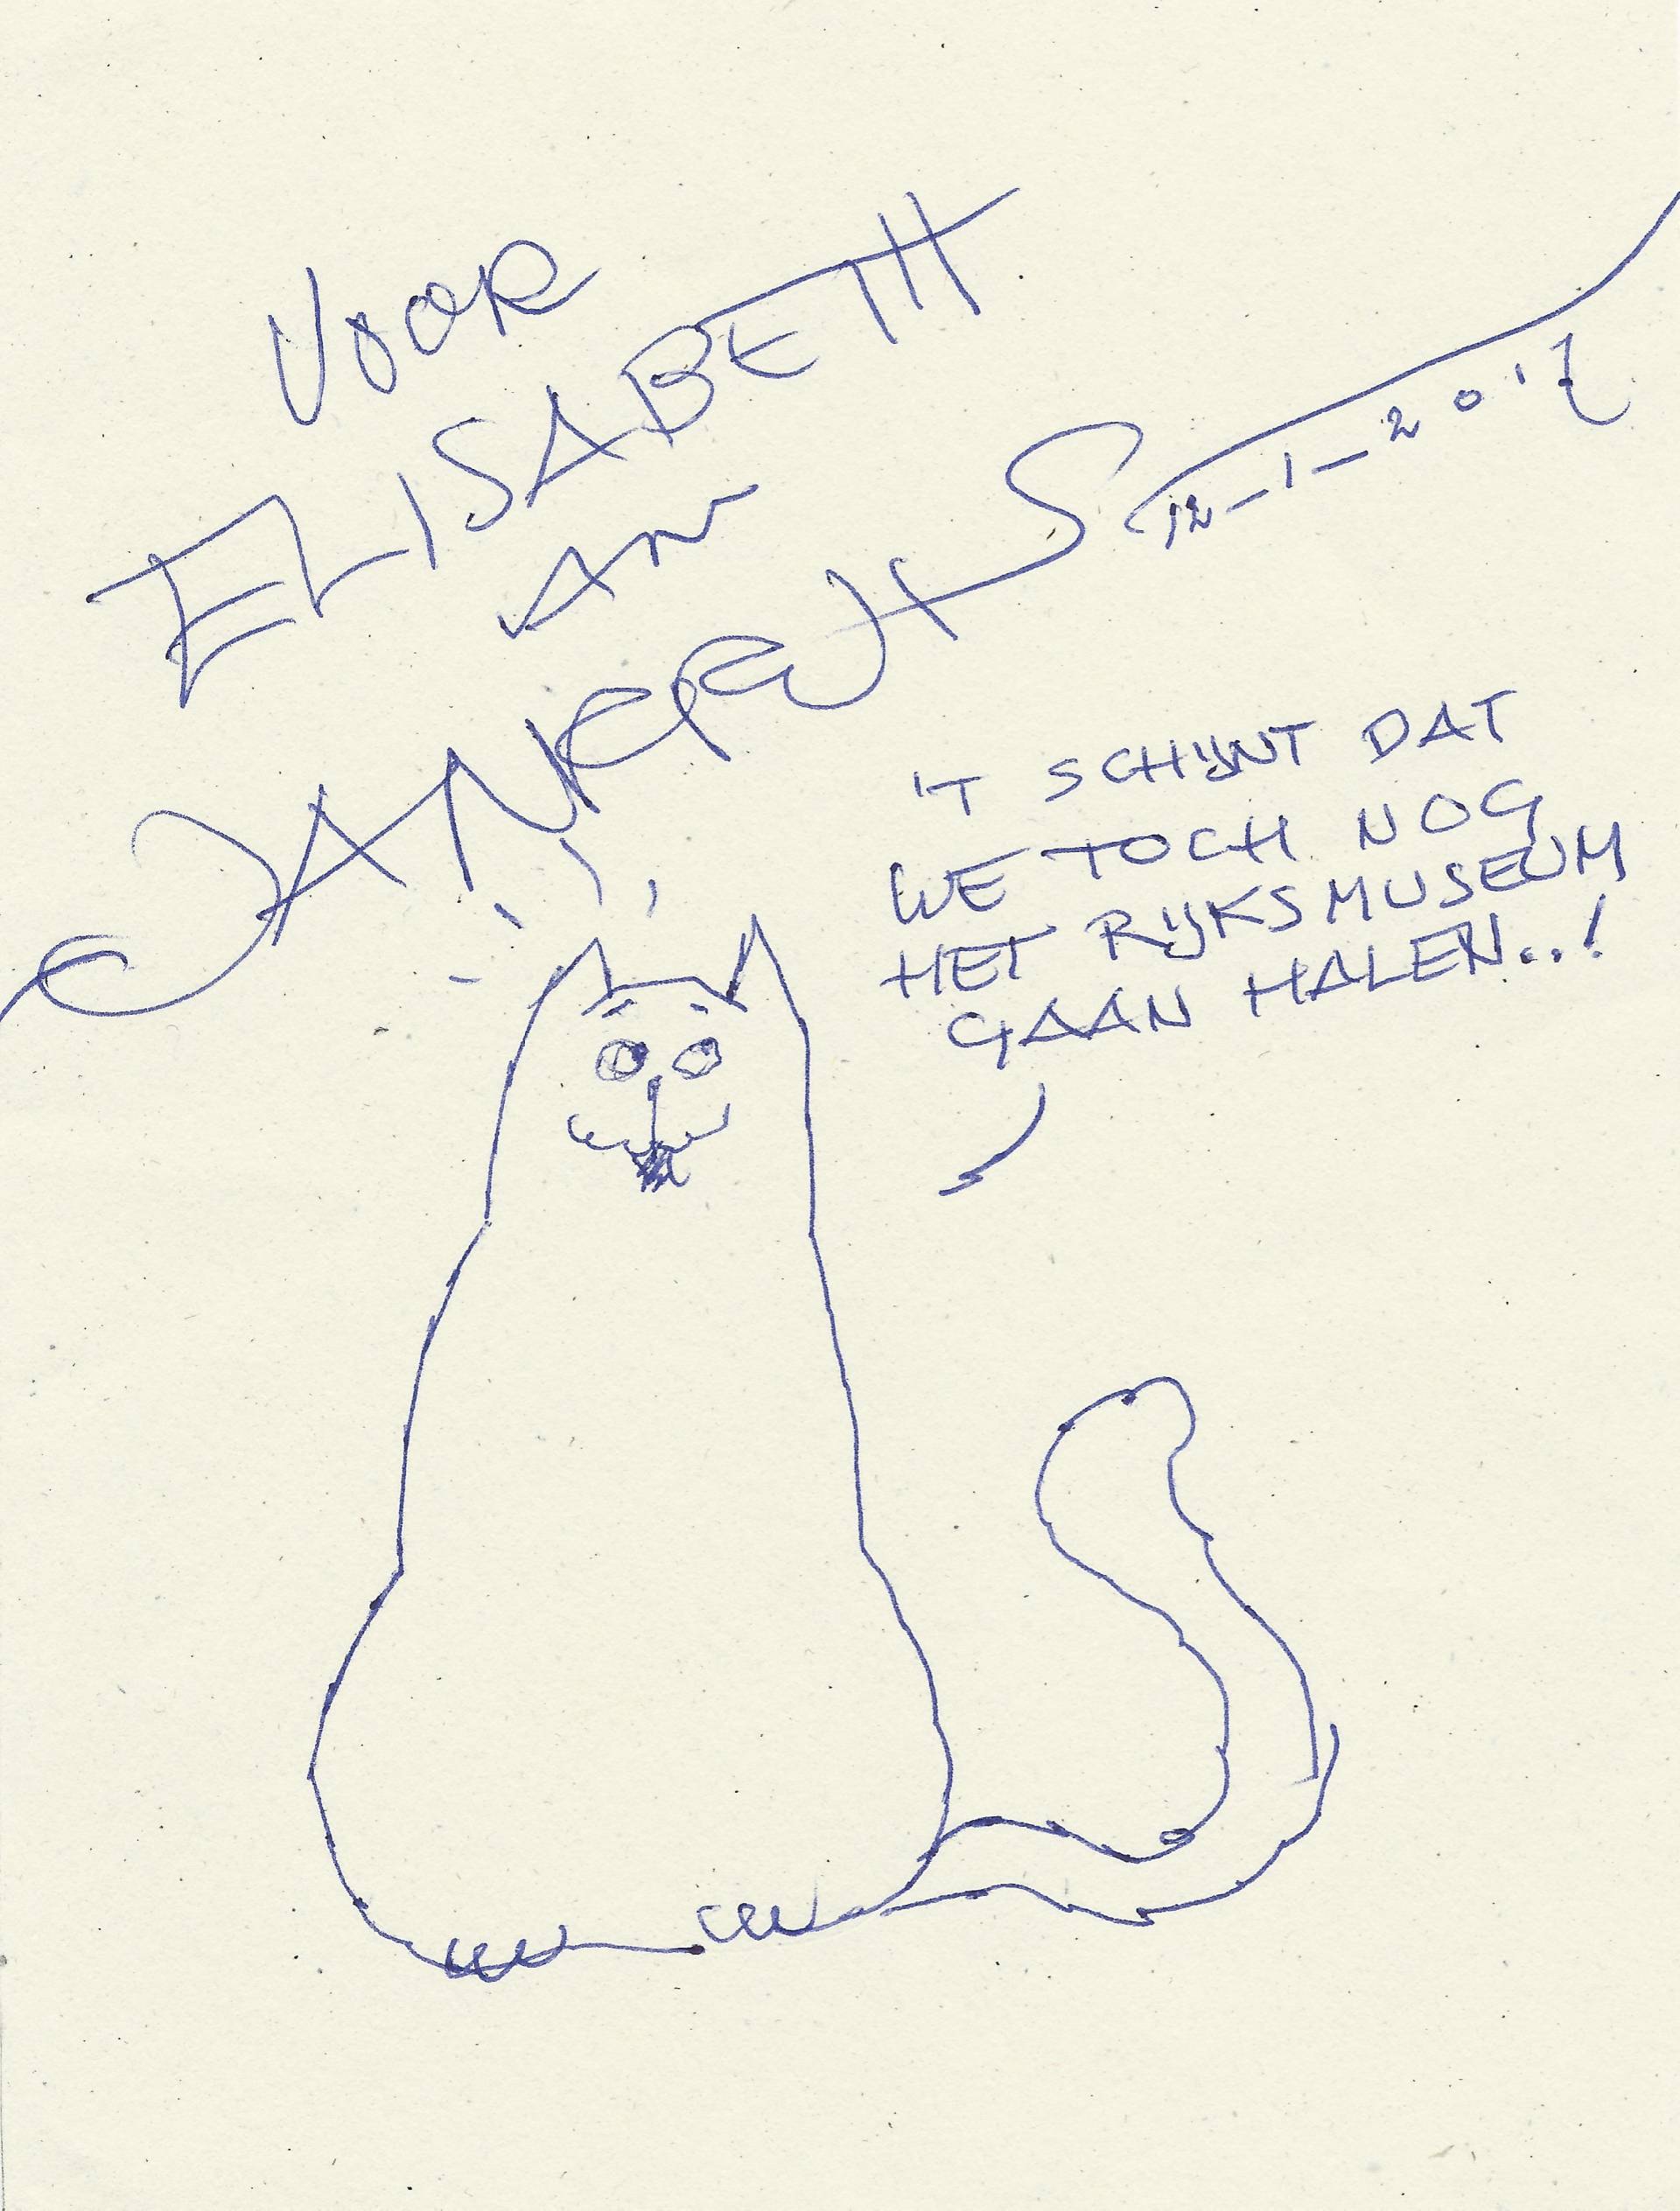 VOOR
ELISABETH
VAN
12-1-2017
'T SCHIJNT DAT
WE TOCH NOG
HET RIJKSMUSEUM
GAAN HALEN..!